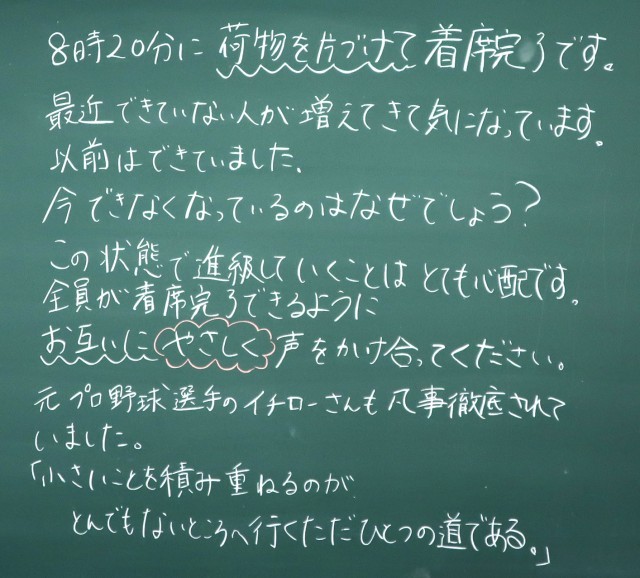 8時20分に荷物を片づけて着席完了です。
最近できていない人が増えてきて気になっています。
以前はできていました.
今できなくなっているのはなぜでしょう?
この状態で進級していくことはとても心配です。
全員が着席完了できるように
お互いにやさしく声をかけ合ってください。
元プロ野球選手のイチローさんも凡事徹底されて
いました。
「小さいことを積み重ねるのが
とんでもないところへ行くただひとつの道である。」